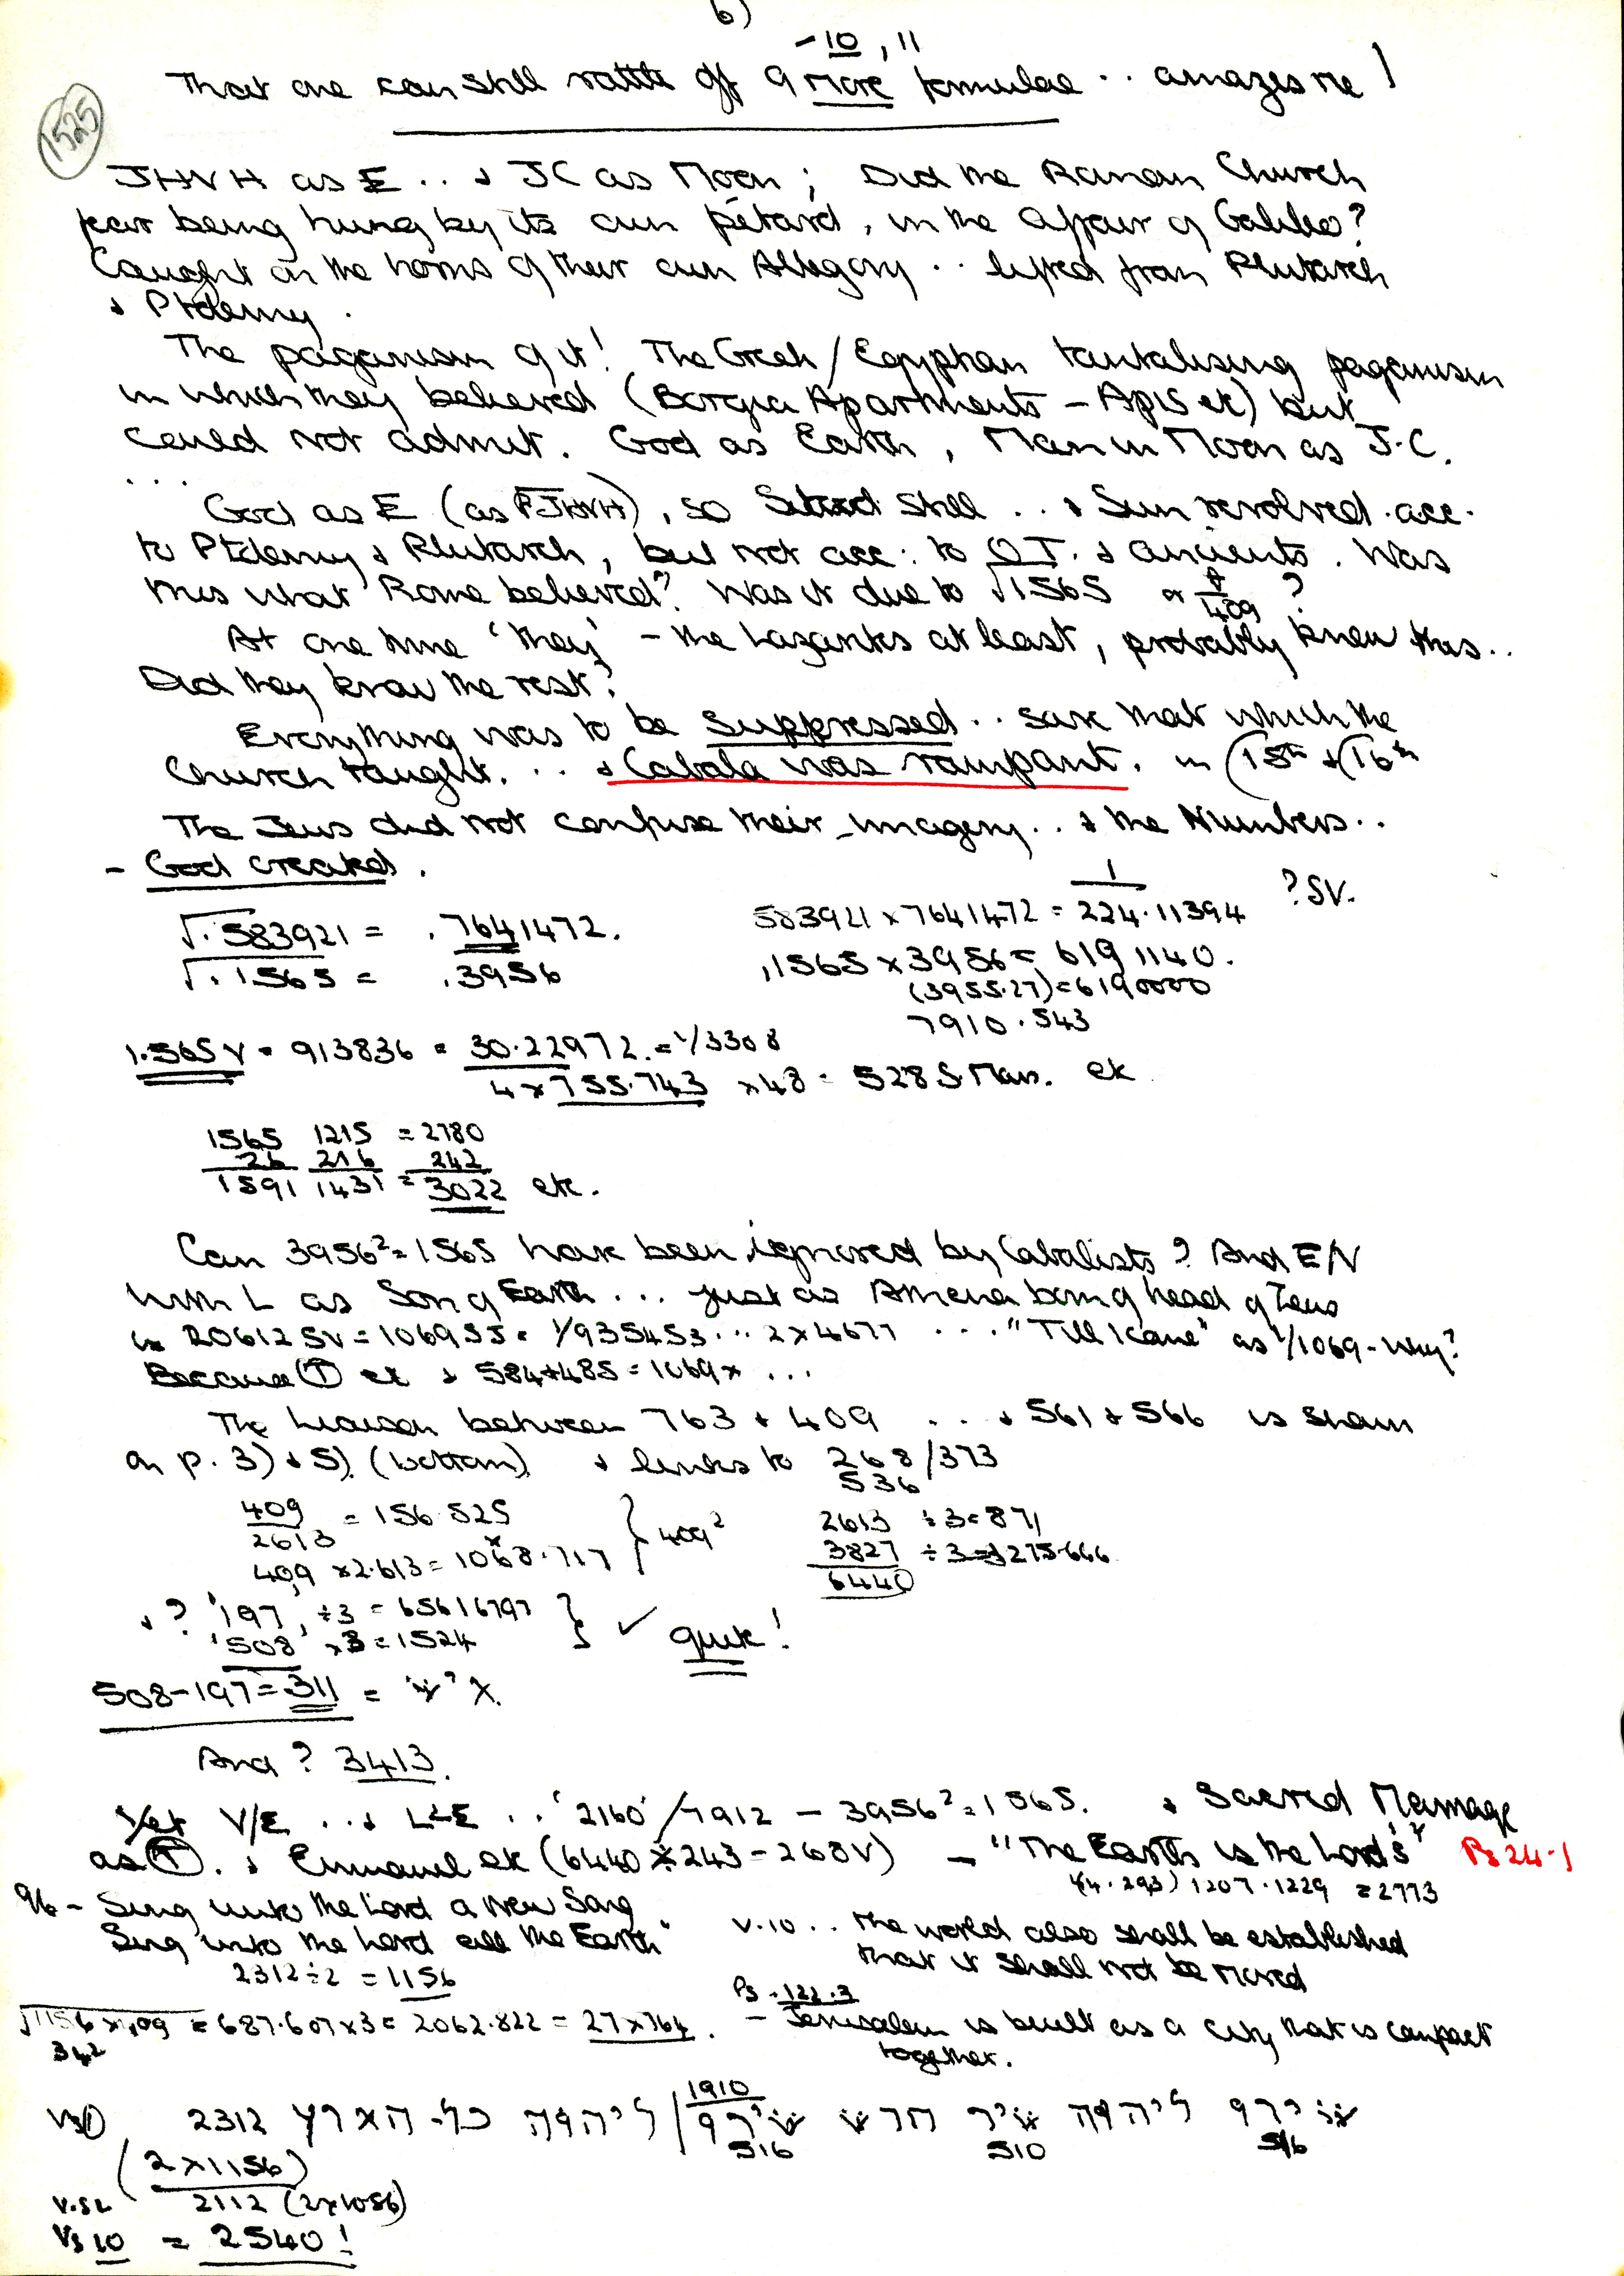 6)
– 10, 11
That one can still rattle off 9 more formulae .. amazes me !
1525
JHVH as E .. & JC as Moon ; Did the Roman Church
fear being hung by its own petard, in the affair of Galileo?
Caught on the horns of their own Allegory .. lifted from Plutarch
& Ptolemy .
The paganism of it! The Greek/Egyptian tantalising paganism
in which they believed (Borgia Apartments – Apis etc) but
could not admit. God as Earth, Man in Moon as J.C.
...
God as E (as JHVH), so stood still .. & Sun revolved . acc.
to Ptolemy & Plutarch, but not acc: to OT. & ancients. Was
this what Rome believed? Was it due to √1565 or 409 ?
At one time 'they' – the Lazarites at least, probably knew this..
Did they know the rest?
Everything was to be suppressed .. save that which the
Church taught. .. & Cabala was rampant. in (15th & (16th
The Jews did not confuse their imagery .. & the Numbers..
– God created.
√.583921 = .7641472. 583921 x 7641472 = 1/224.11394 ? SV.
√.1565 = .3956 .1565 x 3956 = 6191140.
(3955.27) = 6190000
7910.543
1.565 V = 913836 = 30.22972. = 1/3308
4 x 755.743 x 48 = 528 S. Mars. etc
1565 1215 = 2780
26 216 242
1591 1431 = 3022 etc.
Can 3956² = 1565 have been ignored by Cabalists? And E/V
with L as Son of Earth ... just as Athena born of head of Zeus
20612 SV = 1069 SJ = 1/935453 ... 2 x 4677 ... "Till I come" as 1/1069 – Why?
Because (T) etc & 584+485 = 1069 x ...
The liaison between 763 & 409 .. & 561 & 566 is shown
on p. 3) & 5) (bottom) & links to 268/373
536
409/2613 = 156.525 } 409² 2613 ÷ 3 = 871
409 x 2.613 = 1068.717 3827 ÷ 3 = 1275.666
6440
& ? '197' ÷ 3 = 65616797 } ✓ quite!
'508' x 3 = 1524
508 – 197 = 311 = "ש" X.
And ? 3413.
Yet V/E .. & L & E .. '2160'/7912 – 3956² = 1565. & Sacred Marriage
as (T). & Emmanuel etc (6440 x 243 = 268 V) – "The Earth is the Lord's" Ps 24.1
(4.293) 1207.1229 = 2773
96 – Sing unto the Lord a new Song
Sing unto the Lord all the Earth" v.10 .. the world also shall be established
that it shall not be moved
2312 ÷ 2 = 1156
Ps . 122.3
√1156 x 409 = 687.607 x 3 = 2062.822 = 27 x 764. – Jerusalem is built as a city that is compact
together.
34²
1910
שירו ליהוה שיר חדש / שירו ליהוה כל-הארץ 2312
516 510 516
(2 x 1156)
2112 (2 x 1056)
Vs 10 = 2540 !